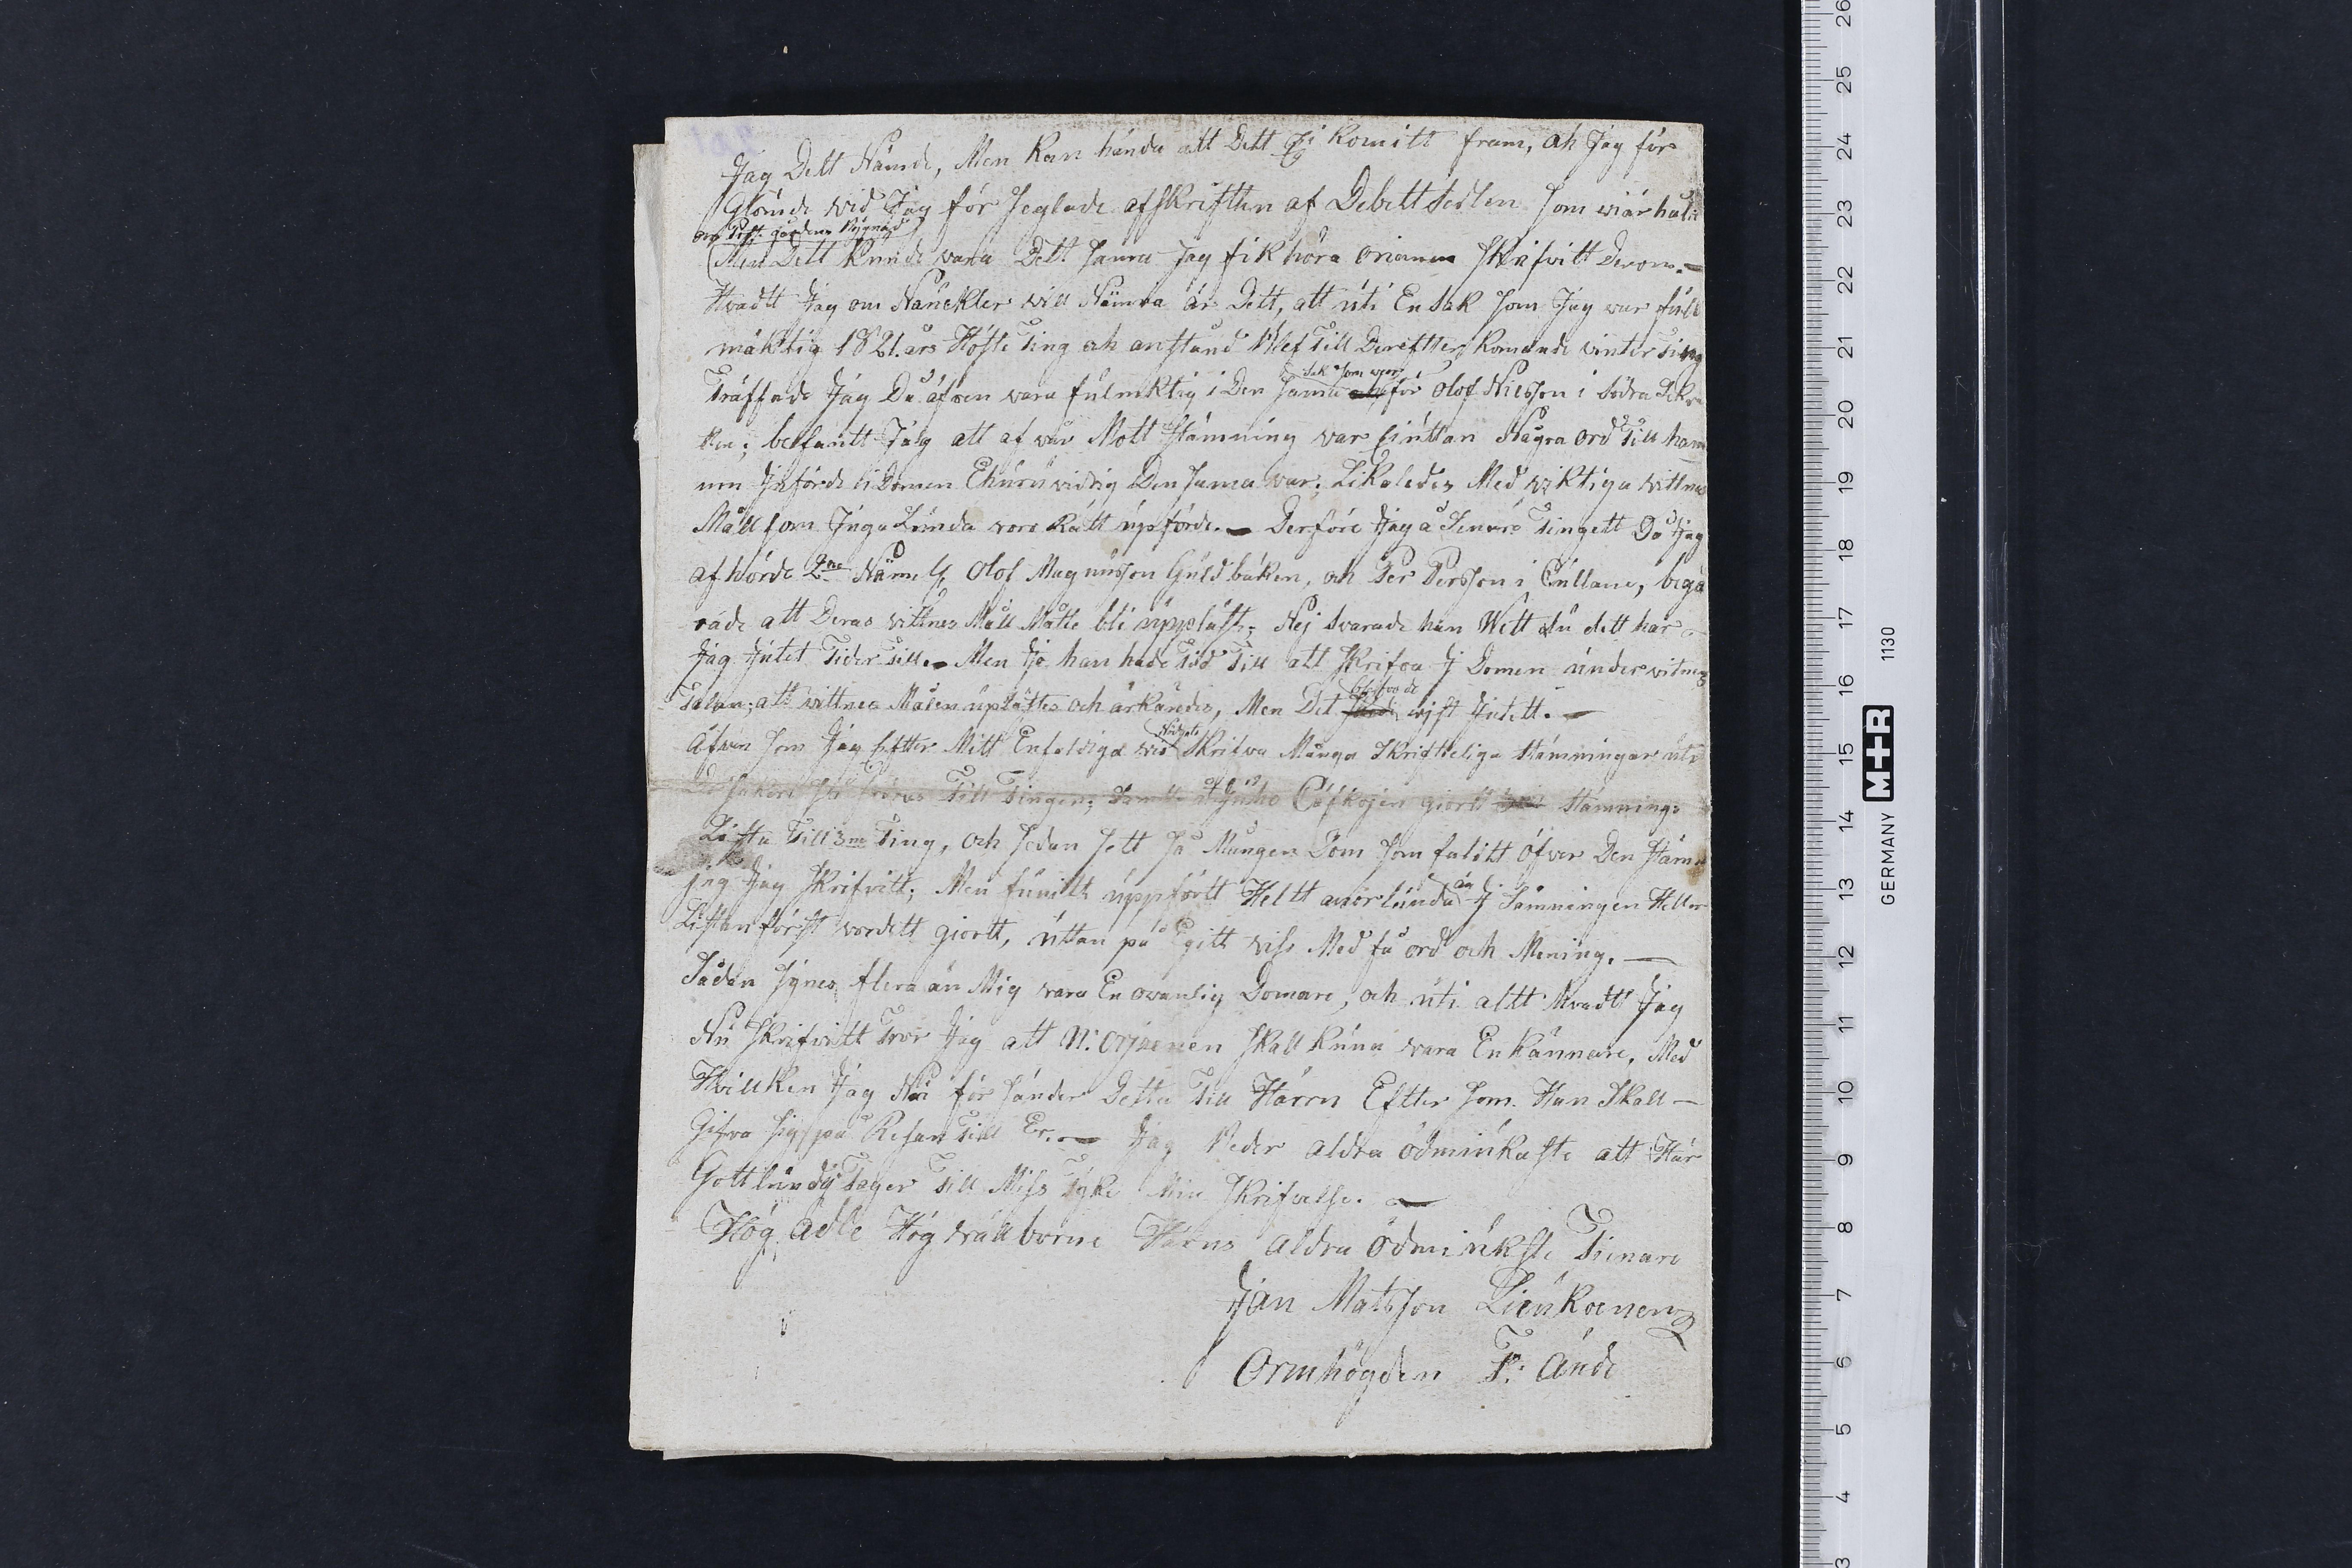 Jag Dett Nämde, Men kan hända att Dett Ej komitt fram, åh Jag för
Glömde wid Jag för Seglade afskriften af Debett Sedlen som wi ärhålit
om Prest gårdens Bÿgnad
Men Dett kunde vara Dett Sama Jag fik höra orianen Skrifvitt Derom. –
Hvadtt Jag om Hanekler will Nämna är Dett, att uti En sak som Jag war full
mäktig 1821. års Höste Ting och anstånd Blef Till Derefter komande vinter Ting
Träffade Jag Då äfven vara fulmktig i Den Sama
sak som war
för Olof Nilsson i Södra
befantt Jag att af wår Mott Stämning var Ej uttan Några ord Till han
um Införde i Domen Ehuru vidrig Den Sama war; Likaledes Med wiktiga vittnes
Måll som Inga Lunda vore Rätt upförde. – Derföre Jag å Senare Tingett Då Jag
afhörde 2ne Näml. Olof Magnusson Guldbäken, och Per Persson i Cullane, begä
räde att Deras vittnes Måll Måtte bli uppläste; Nej svarade han Wett du dett har
Jag Intet Tider Till. – Men Jo han hade Tid Till att Skrifva I Domen under witnes
Talan; att vittnes Målen uplästes och ärkändes, Men Det
blefvo de
wist Intett. –
Äfven som Jag Efter Mitt Enfaldiga
Skrifva Många Skrifteliga Stämningar uti
Till Tingen; giort Stämnings
Lista Till 3ne Ting, och Sedan Sett så Mången Dom som falitt öfver Den Stäm
ing Jag Skrifvitt; Men funitt uppförtt Heltt anorlunda än I Stämningen Heller
Listan först wordett giortt, uttan på Egitt viss Med få ord och Mening. –
Sådan sÿnes flera än Mig vara En ovanlig Domare, och uti alltt hvadtt Jag
Nu Skrifvitt Tror Jag att N: Orjaenen skall kuna vara En kännare, Med
Hvillken Jag Nu för Sänder Detta Till Härrn Eftter som Han Skall –
Gifva sig på Resan Till Er. – Jag Beder aldra ödmiukaste att Här
Gottlund Ej Tager Till Miss Tÿke Min Skrifvelse. –
Hög ädle Högvällborne Härns aldra ödmiukste Tienare
Jan Matsson Liukoinen
Ormhögden F: Ände